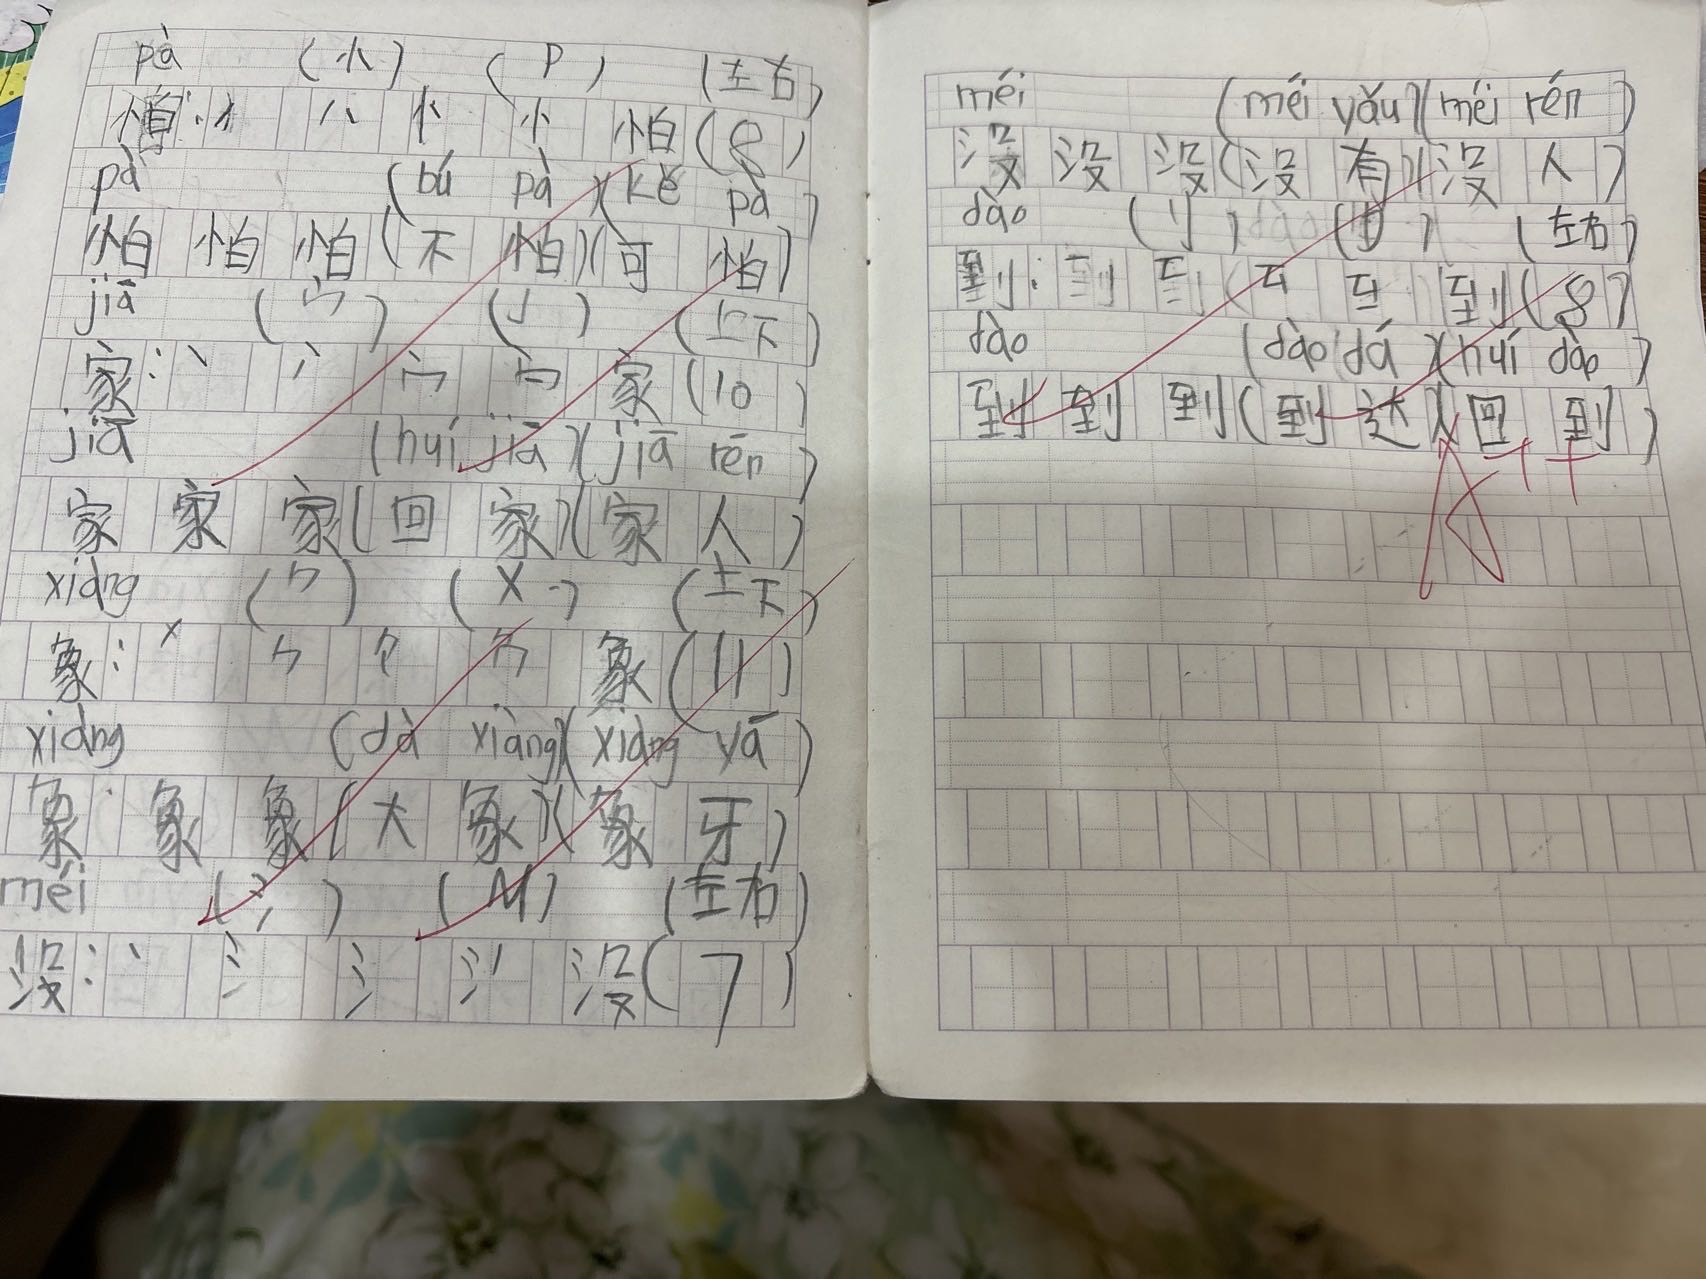 pà (忄) (P) (左右)
怕: 丶 丷 忄 忄 怕 (8)
pà (bú pà)(kě pà)
怕 怕 怕 (不 怕)(可 怕)
jiā (宀) (J) (上下)
家: 丶 丷 宀 宀 家 (10)
jiā (huí jiā)(jiā rén)
家 家 家 (回 家)(家 人)
xiàng (⺈) (X) (上下)
象: 丿 ⺈ 象 (11)
xiàng (dà xiàng)(xiàng yá)
象 象 象 (大 象)(象 牙)
méi (氵) (M) (左右)
没: 丶 氵 氵 没 (7)
méi (méi yǒu)(méi rén)
没 没 没 (没 有)(没 人)
dào (刂) (D) (左右)
到: 到 (8)
dào (dào dá)(huí dào)
到 到 到 (到 达)(回 到)
A++